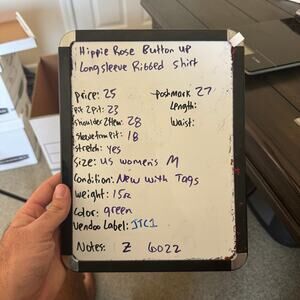 Hippie Rose Button up
Longsleeve Ribbed Shirt
price: 25
postmark 27
Pit 2 Pit: 23
Length:
Shoulder 2 Hem: 28
Waist:
Sleeve from Pit: 18
Stretch: yes
Size: US women's M
Condition: New with Tags
weight: 15oz
Color: green
Vendoo Label: JTC1
Notes: Z 6022